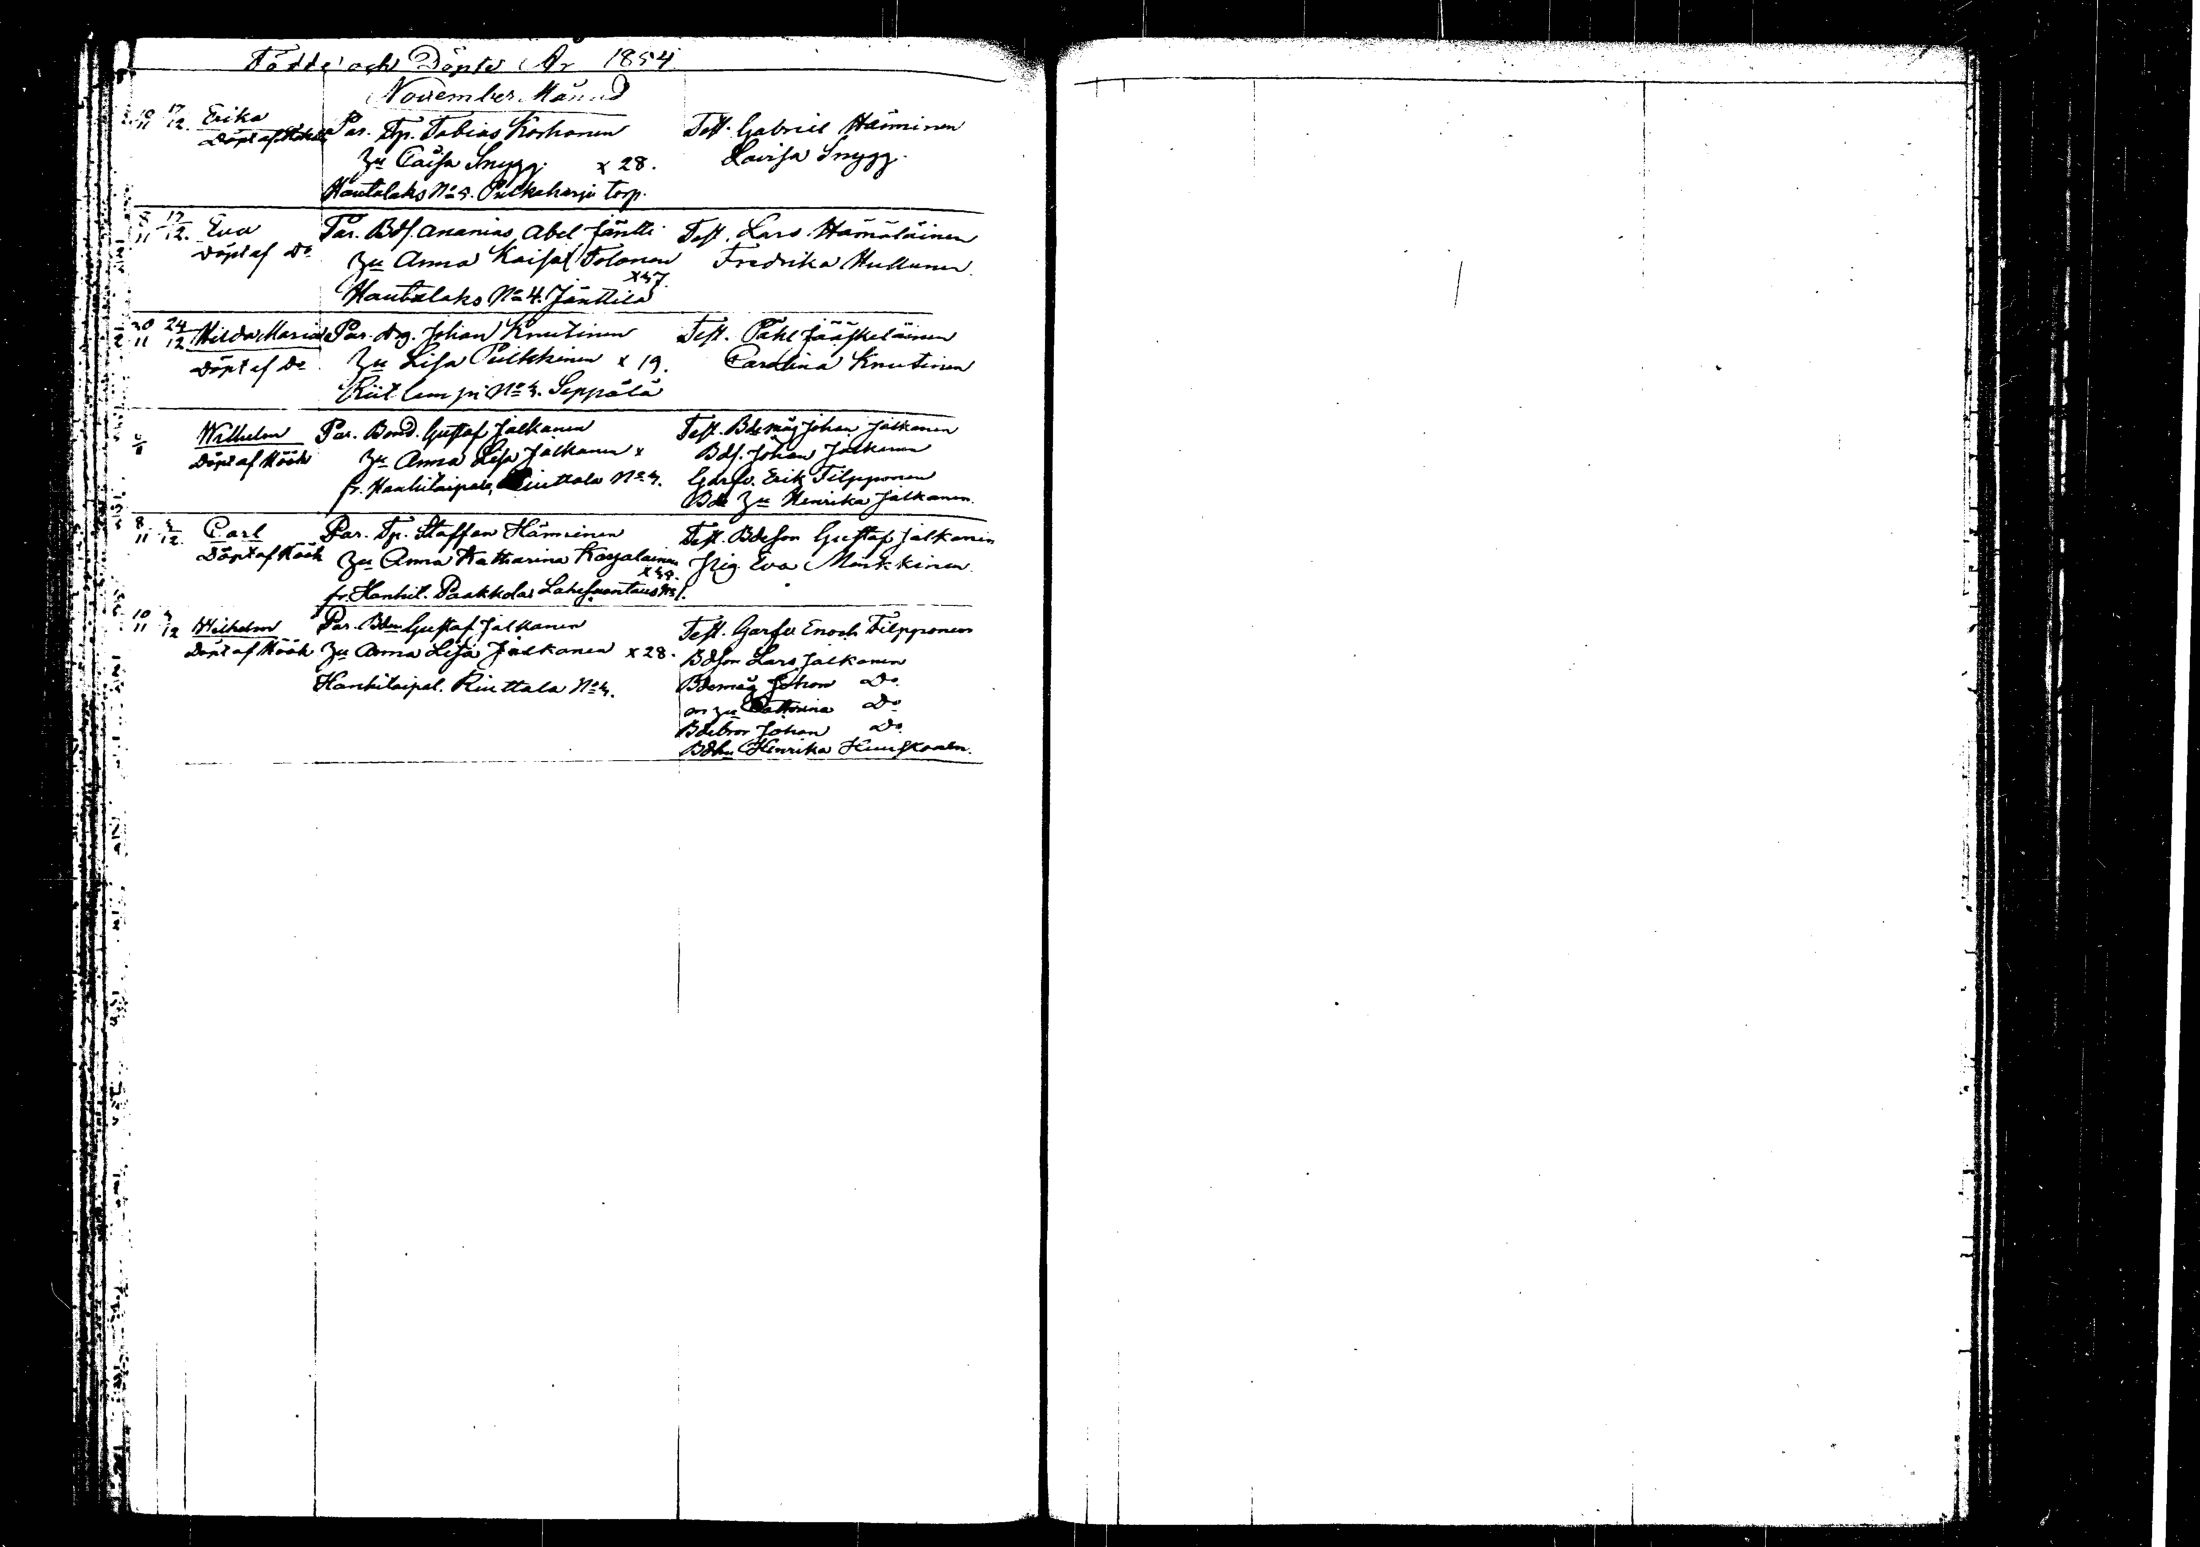 Födde och Döpte År 1854
November Månad
10/11 17/12 Erika
Döpt af
Par. Tp. Tobias Korhonen
Hu Caisa Snygg x 28.
Hautolaks No 9. Pitkaharju torp.
Test. Gabriel Hänninen
Lovisa Snygg.
8/11 17/12. Eva
Döpt af Do
Par. Bds. Ananias Abel Jäntti
Hu Anna Kaisa Tolonen
x 47.
Hautolaks No 4. Jänttilä
Test. Lars Hämäläinen
Fredrika Hullunen.
20/11 24/12 Hilda Maria
Döpt af Do
Par. Johan Knutinen
Hu Lisa Pulkkinen x 19.
Riitlampi No 4. Seppälä
Test. Påhl Jääskeläinen
Carolina Knutinen
Wilhelm
Döpt af Höök
Par. Bond. Gustaf Jalkanen
Hu Anna Lisa Jalkanen x
fr. Hankitaipale, Riuttala No 4.
Test. Bdemåg Johan Jalkanen
Bds. Johan Jalkanen
Garfv. Erik Filpponen
Bde Hu Henrika Jalkanen.
8/11 /12. Carl
Döpt af Höök
Par. Tp. Staffan Hänninen
Hu Anna Katharina Karjalainen
fr. Hankit. Paakkola
Test. Bdeson Gustaf Jalkanen
Pig. Eva Markkinen.
10/11 /12 Wilhelm
Döpt af Höök
Par. Bden Gustaf Jalkanen
Hu Anna Lisa Jalkanen x 28.
Hankitaipal. Riuttala No 4.
Test. Garfv Enoch Filpponen
Bdson Lars Jalkanen
Bdemåg Johan Do
Hu Cathrina Do
Bdebror Johan Do
Henrika